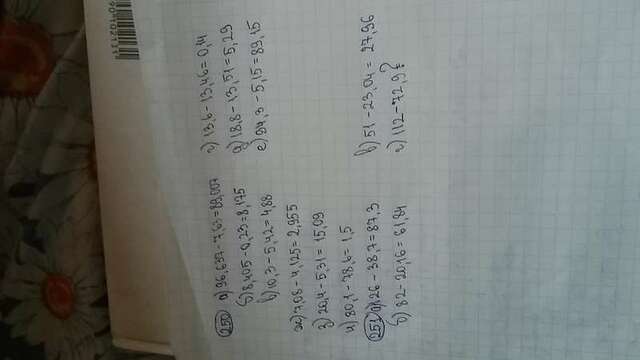 250 а) 96,637-7,63=89,007
б) 8,405-0,23=8,175
в) 10,3-5,42=4,88
г) 13,6-13,46=0,14
д) 18,8-13,51=5,29
е) 94,3-5,15=89,15
ж) 7,08-4,125=2,955
з) 20,4-5,31=15,09
и) 80,1-78,6=1,5
251 а) 126-38,7=87,3
б) 82-20,16=61,84
в) 51-23,04=27,96
г) 112-72,9?